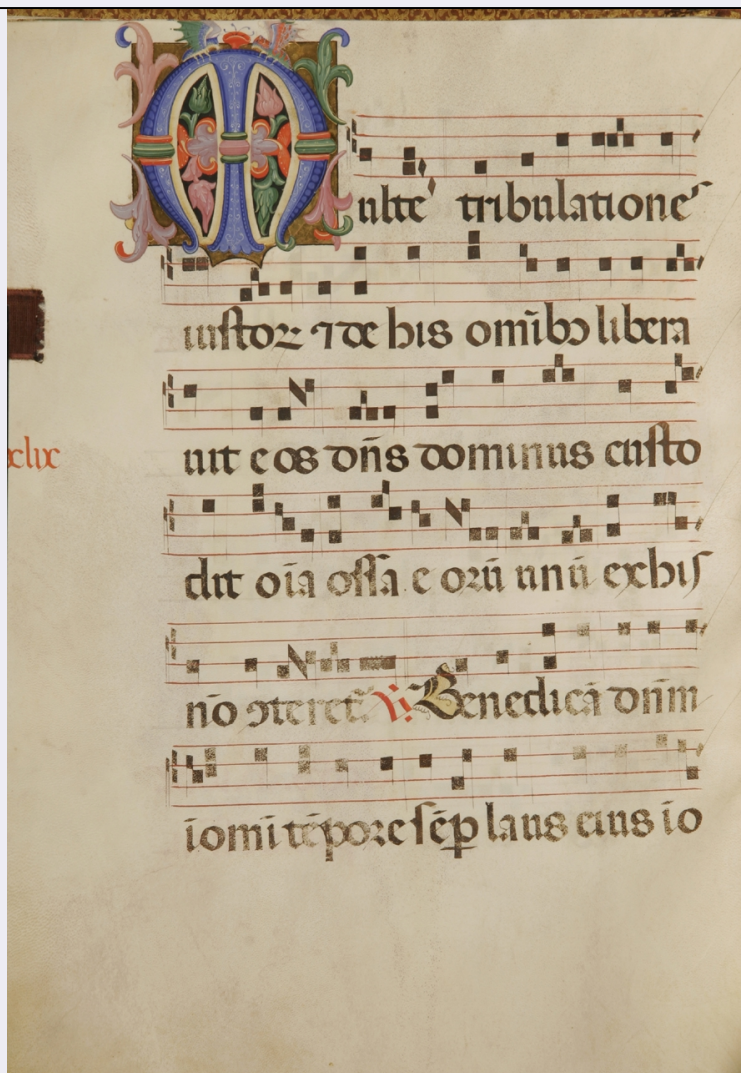 Multe tribulationes
iustoꝝ ⁊ de his om̄ibꝫ libera
uit eos dn̄s dominus custo
xclix
dit oīa ossa eorū unū ex his
nō ꝯteret᷑ ℣ Benedicā dn̄m
ī omī tēpore sēp laus eius ī o